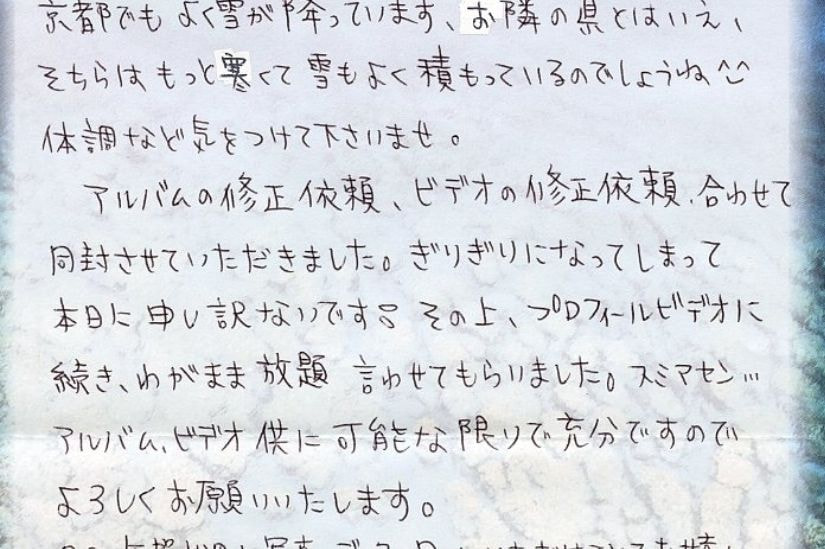 京都でもよく雪が降っています、お隣の県とはいえ、
そちらはもっと寒くて雪もよく積もっているのでしょうね^^
体調など気をつけて下さいませ。
アルバムの修正依頼、ビデオの修正依頼、合わせて
同封させていただきました。ぎりぎりになってしまって
本日に申し訳ないです。その上、プロフィールビデオに
続き、わがまま放題言わせてもらいました。スミマセン…
アルバム、ビデオ供に可能な限りで充分ですので
よろしくお願いいたします。